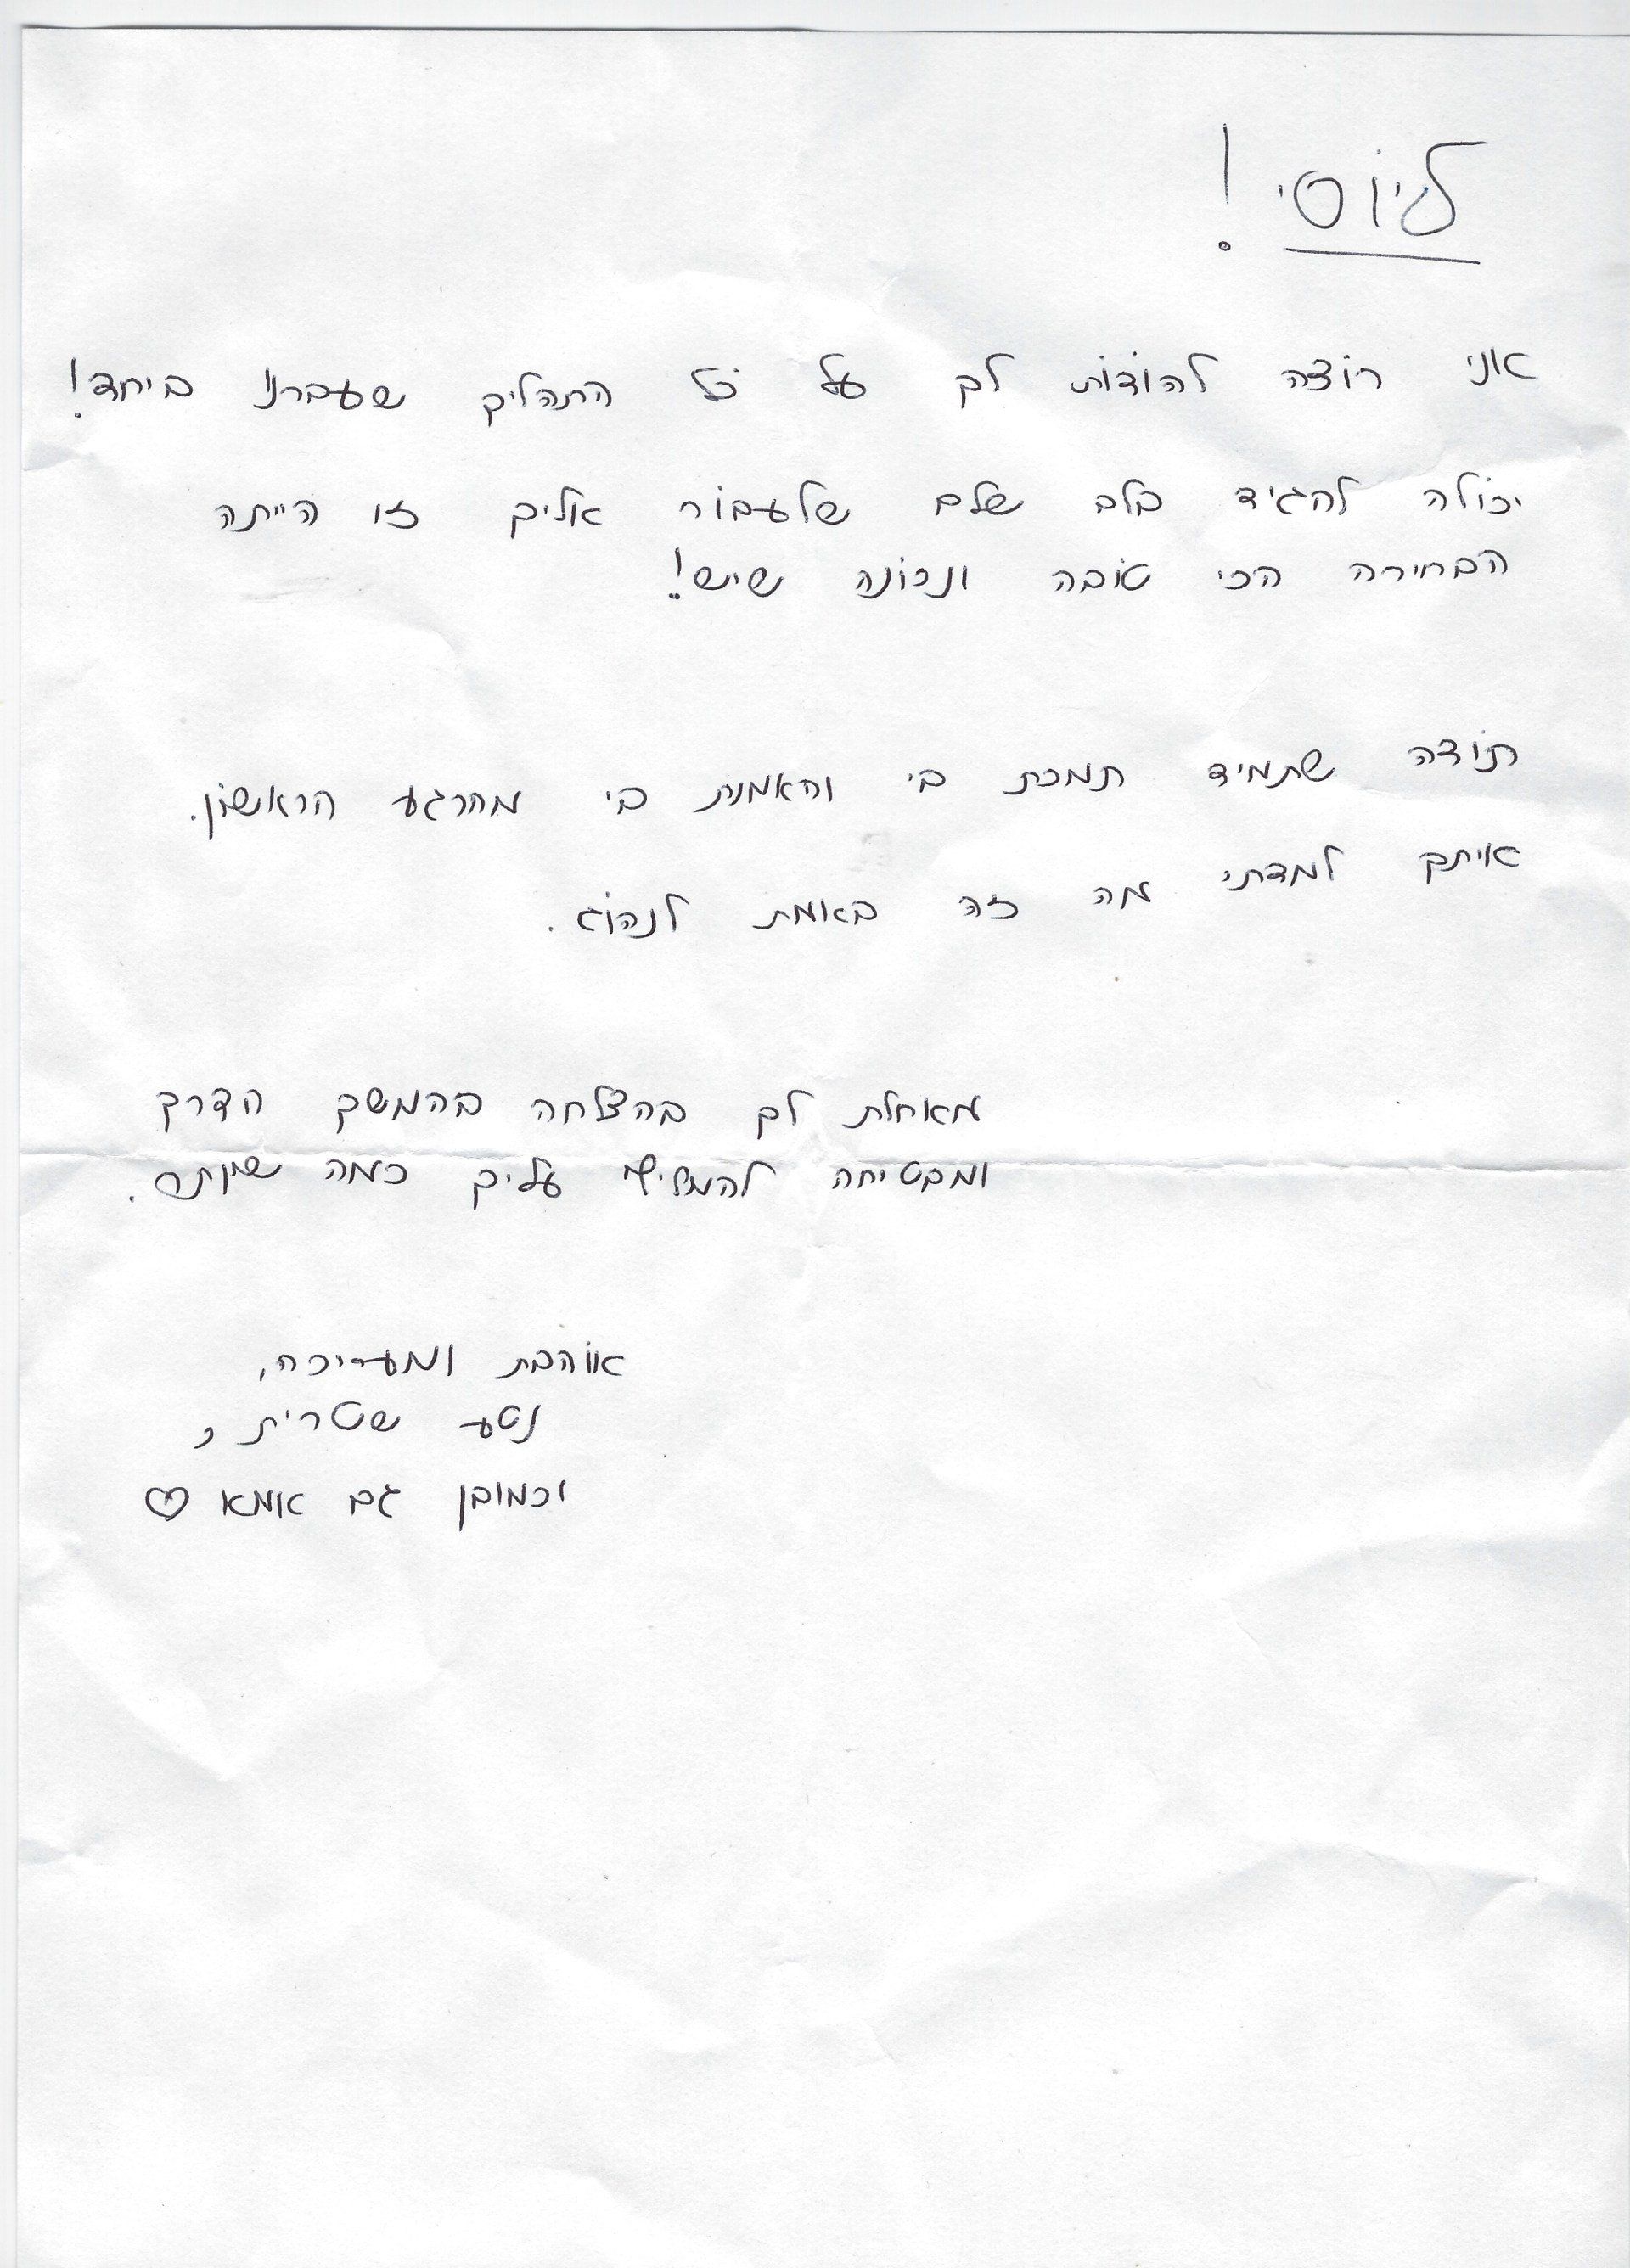 ליוסי!
אני רוצה להודות לך על כל התהליך שעברנו ביחד!
יכולה להגיד בלב שלם שלעבור אליך זו הייתה
הבחירה הכי טובה ונכונה שיש!
תודה שתמיד תמכת בי והאמנת בי מהרגע הראשון.
איתך למדתי מה זה באמת לנהוג.
מאחלת לך בהצלחה בהמשך הדרך
ומבטיחה להמליץ עליך כמה שניתן.
אוהבת ומעריכה,
נטע שטרית,
וכמובן גם אמא ♡